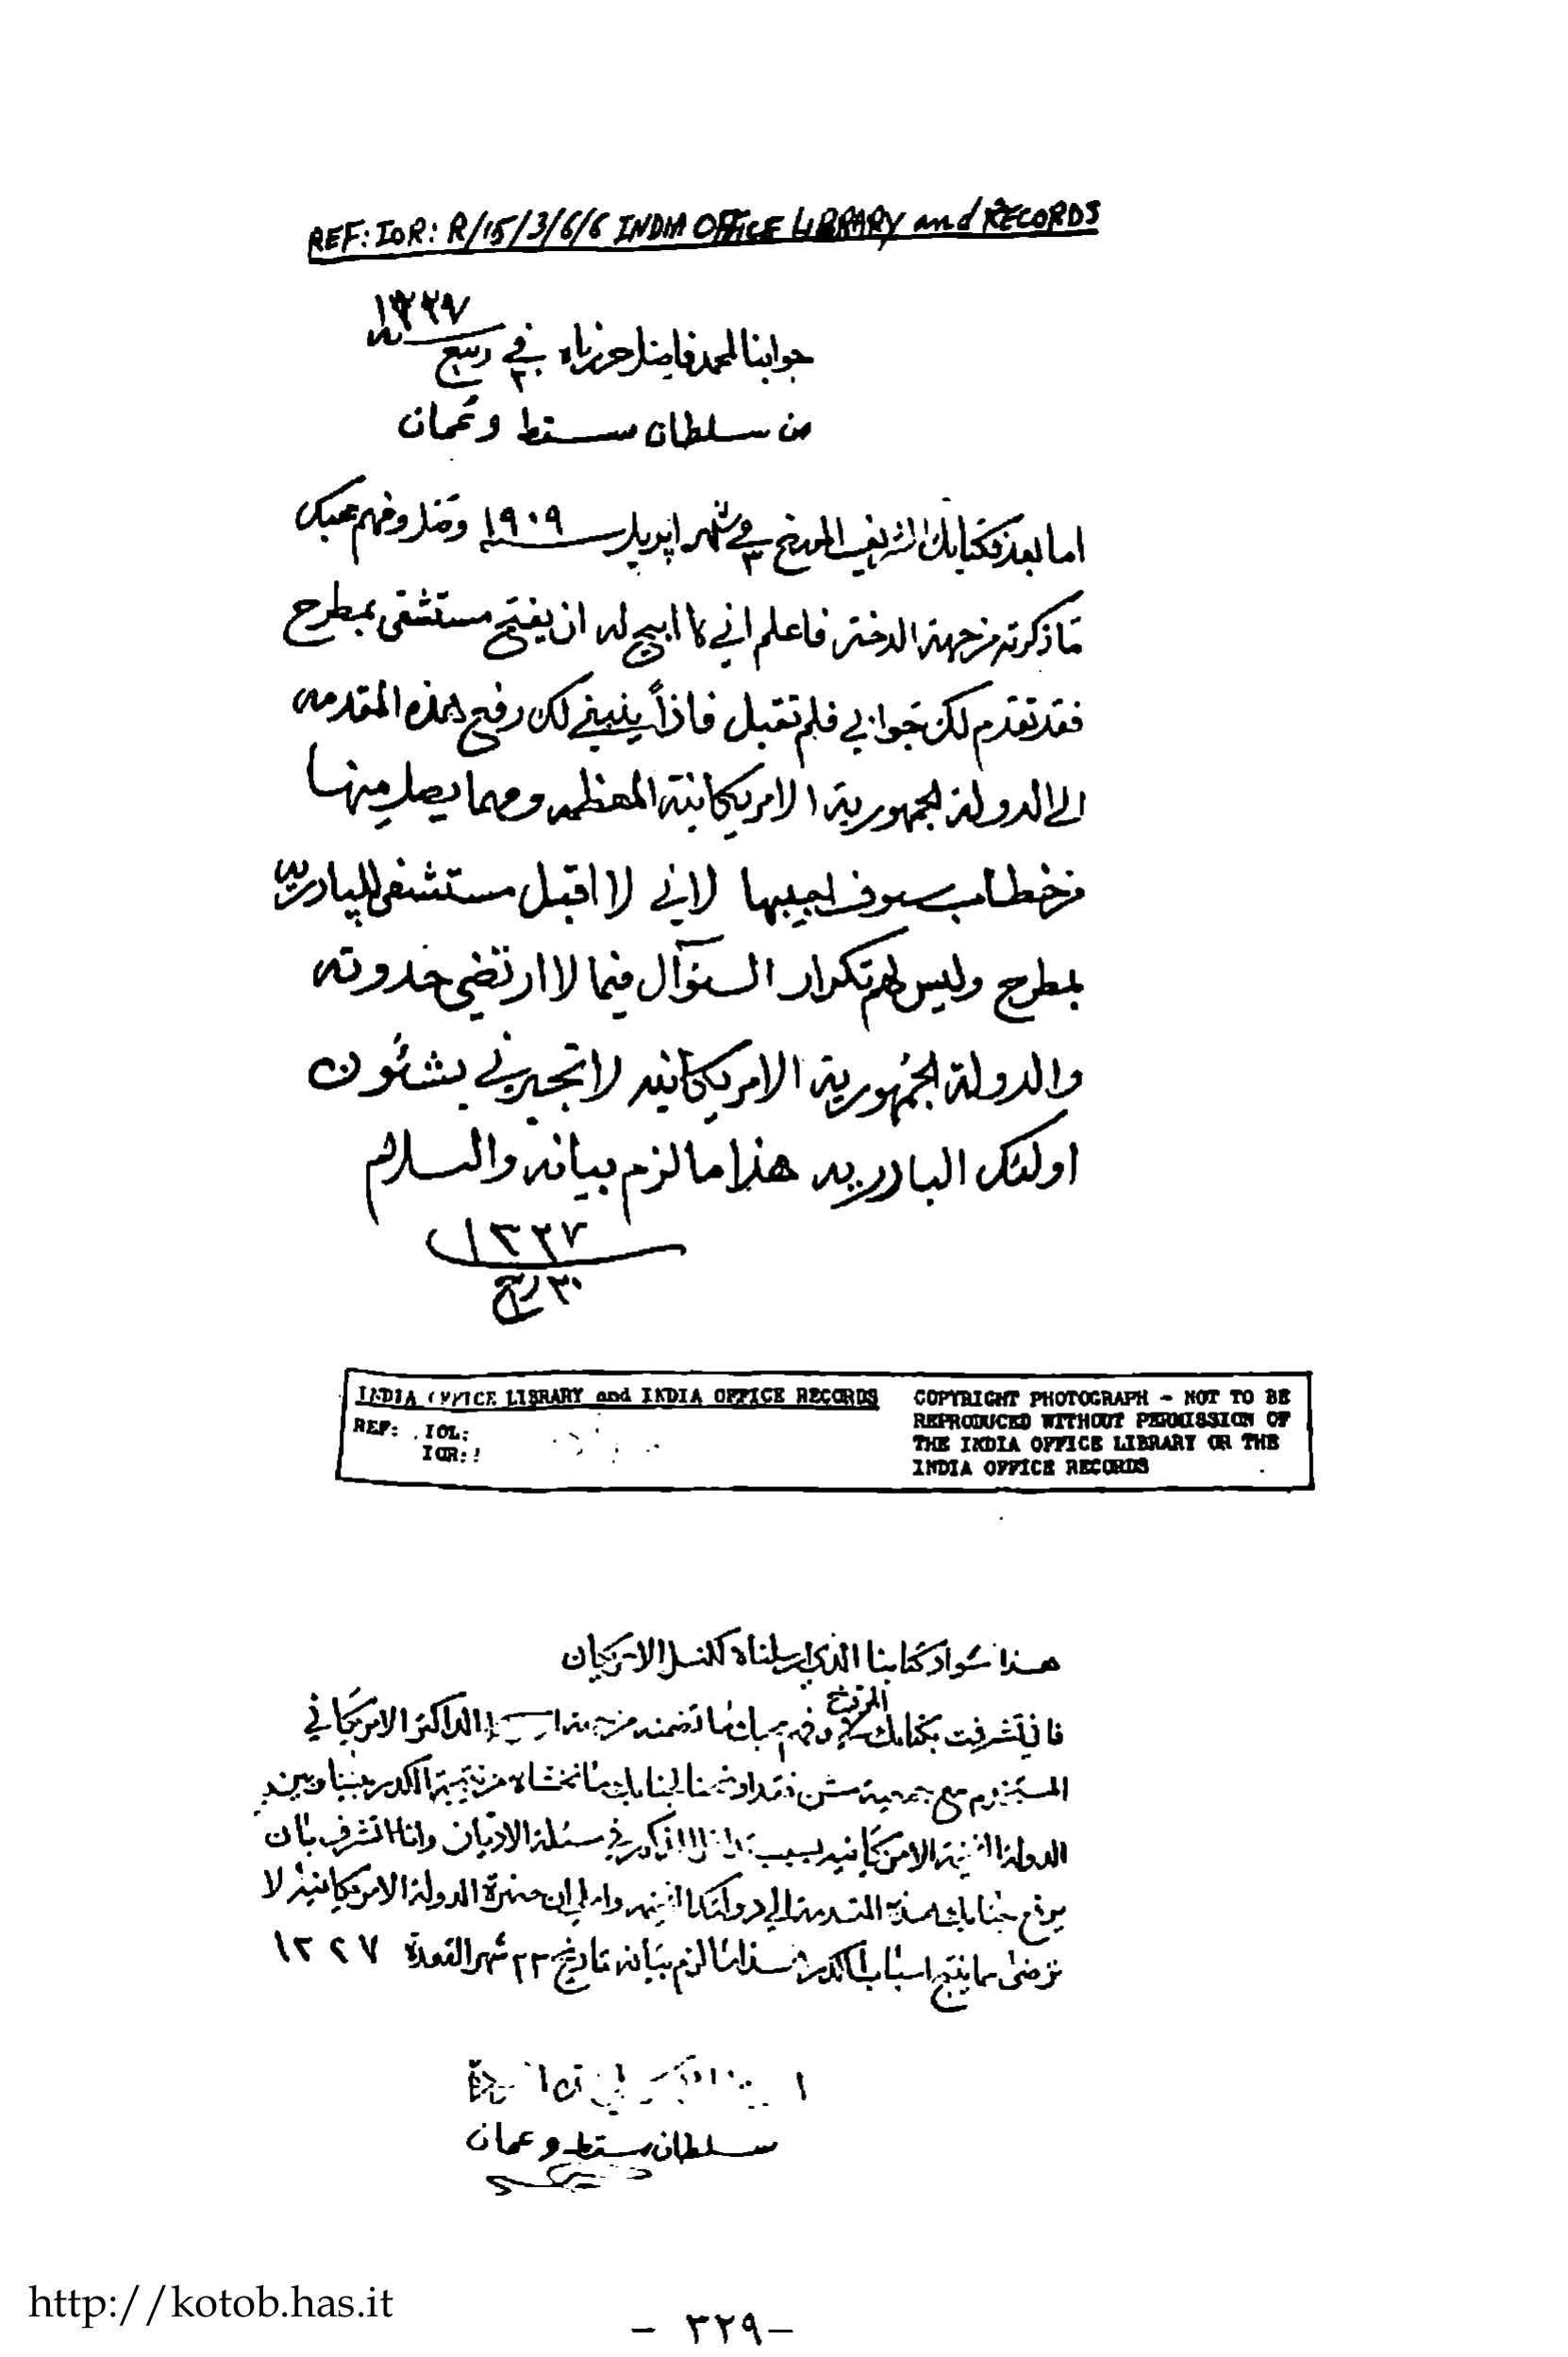 REF: IOR: R/15/3/6/6 INDIA OFFICE LIBRARY and RECORDS
١٣٢٧
جوابنا لمحمد فاضل حررناه في ٣٠ ربيع
من سلطان مسقط وعمان
اما بعد فكتابك الشريف المورخ في ٣ شهر ابريل ١٩٠٩ وصل وفهم محبك
ما ذكرته من جهة الدختر فاعلم اني لا ابيح له ان يفتح مستشفى بمطرح
فقد تقدم لك جوابي فلم تقبل فاذاً ينبغي لك رفع هذه المقدمه
الى الدولة الجمهورية الامريكانية المعظمه ومهما يصل منها
من خطاب سوف اجيبها لاني لا اقبل مستشفى للپادريه
بمطرح وليس لهم تكرار السؤآل فيما لا ارتضي حدوثه
والدولة الجمهورية الامريكانيه لا تجبرني بشئون
اولئك البادريه هذا ما لزم بيانه والسلام
١٣٢٧
٣٠ ربيع
INDIA OFFICE LIBRARY and INDIA OFFICE RECORDS
REF: IOL:
IOR:
COPYRIGHT PHOTOGRAPH - NOT TO BE
REPRODUCED WITHOUT PERMISSION OF
THE INDIA OFFICE LIBRARY OR THE
INDIA OFFICE RECORDS
هذا سواد كتابنا الذي ارسلناه لكنسل الامريكان
فاني تشرفت بكتابك المورخ وفهم محبك ما تضمنه من جهة الداكتر الامريكاني
المستخدم مع جمعية مشن فقد اوضحنا لجنابك ما نخشاه من نتيجة الكدر بيننا وبين
الدولة الامريكانيه بسبب في مسئلة الاديان وانا اتشرف بان
يرفع جنابك هذه المقدمة الى دولتك الفخيمه واملي ان حضرة الدولة الامريكانية لا
ترضى بما ينتج اسباب الكدر هذا ما لزم بيانه تاريخ ٢٣ شهر القعدة ١٣٢٧
سلطان مسقط وعمان
http://kotob.has.it
- ٣٢٩ -